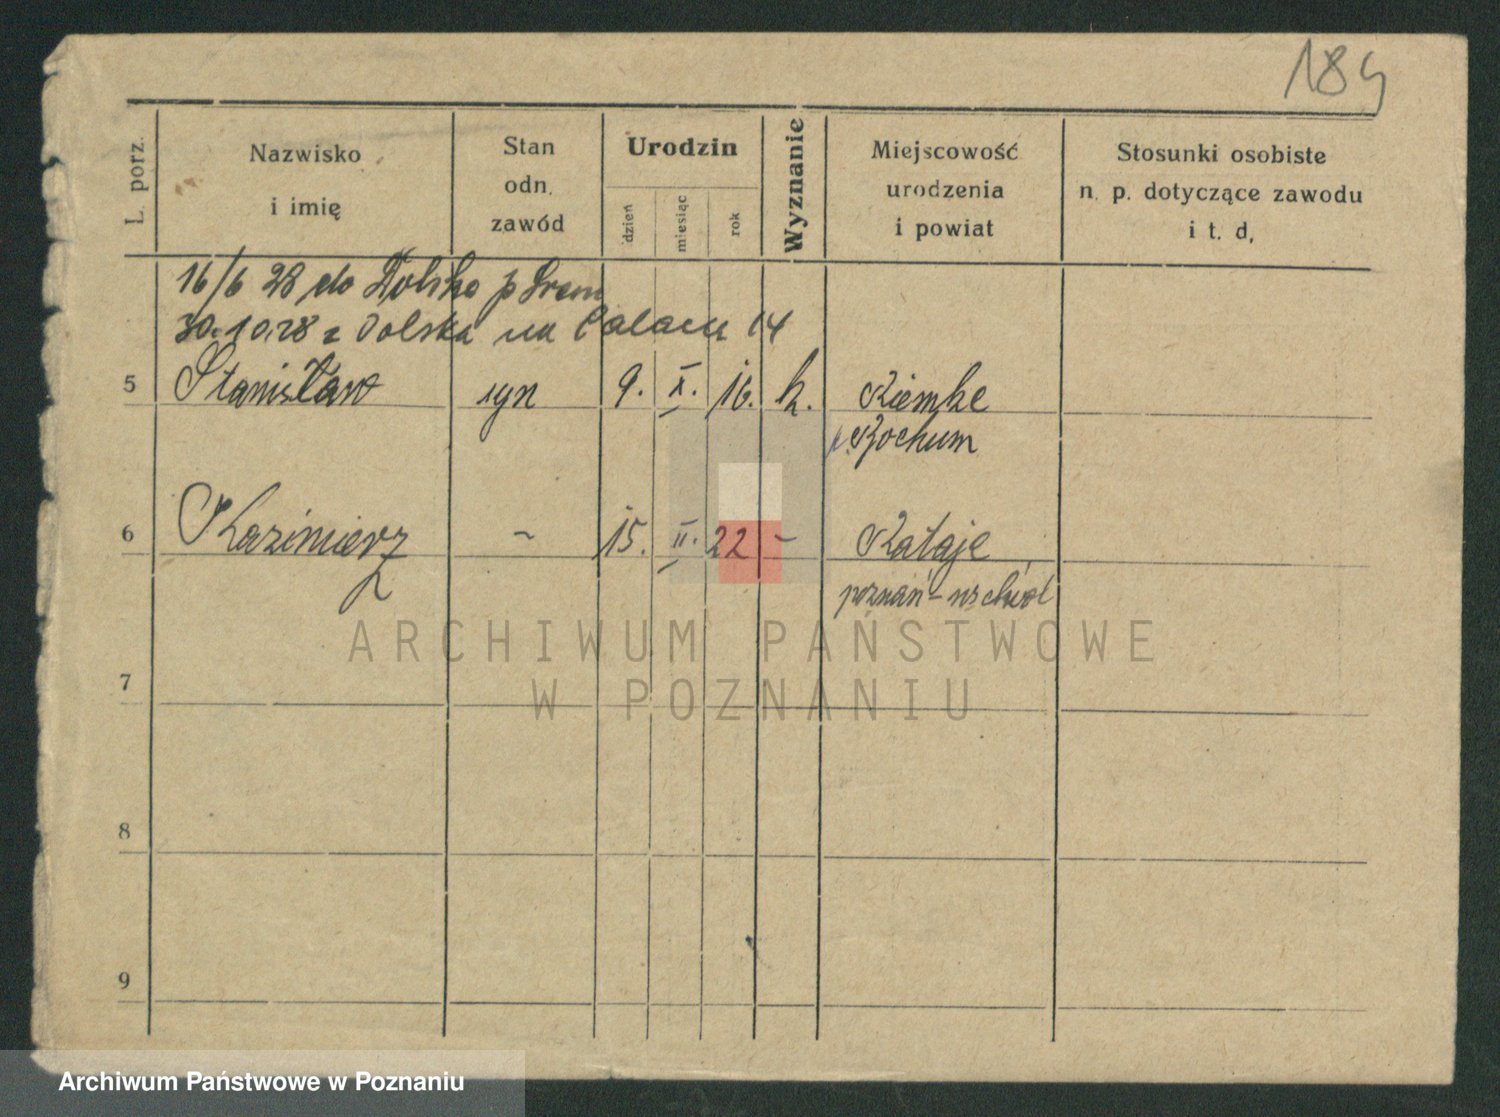 189
L. porz.
Nazwisko
i imię
Stan
odn.
zawód
Urodzin
dzień
miesiąc
rok
Wyznanie
Miejscowość
urodzenia
i powiat
Stosunki osobiste
n. p. dotyczące zawodu
i t. d.
16/6 28 do Dolska p Śrem
30.10.28 z Dolska na 14
5 Stanisław syn 9. X. 16. k. Riemke
p. Bochum
6 Kazimierz - 15. II. 22 - Rataje
poznań-wschód
ARCHIWUM PAŃSTWOWE
W POZNANIU
7
8
9
Archiwum Państwowe w Poznaniu